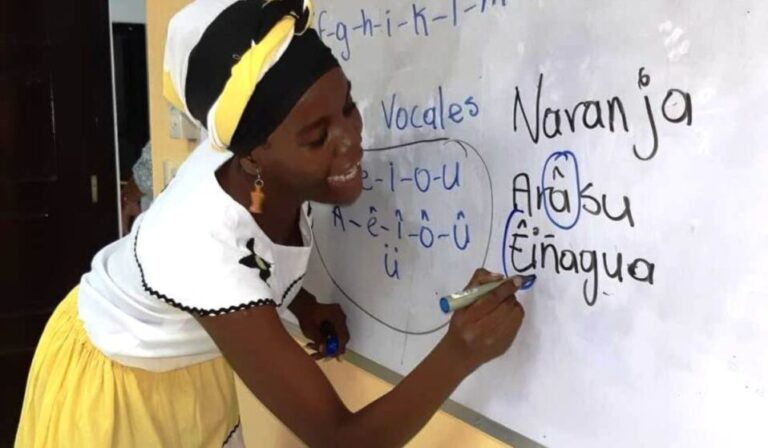 f-g-h-i-k-l-m
Vocales
e-i-o-u
A-ê-î-ô-û
ü
Naranja
Arâsu
Êiñagua